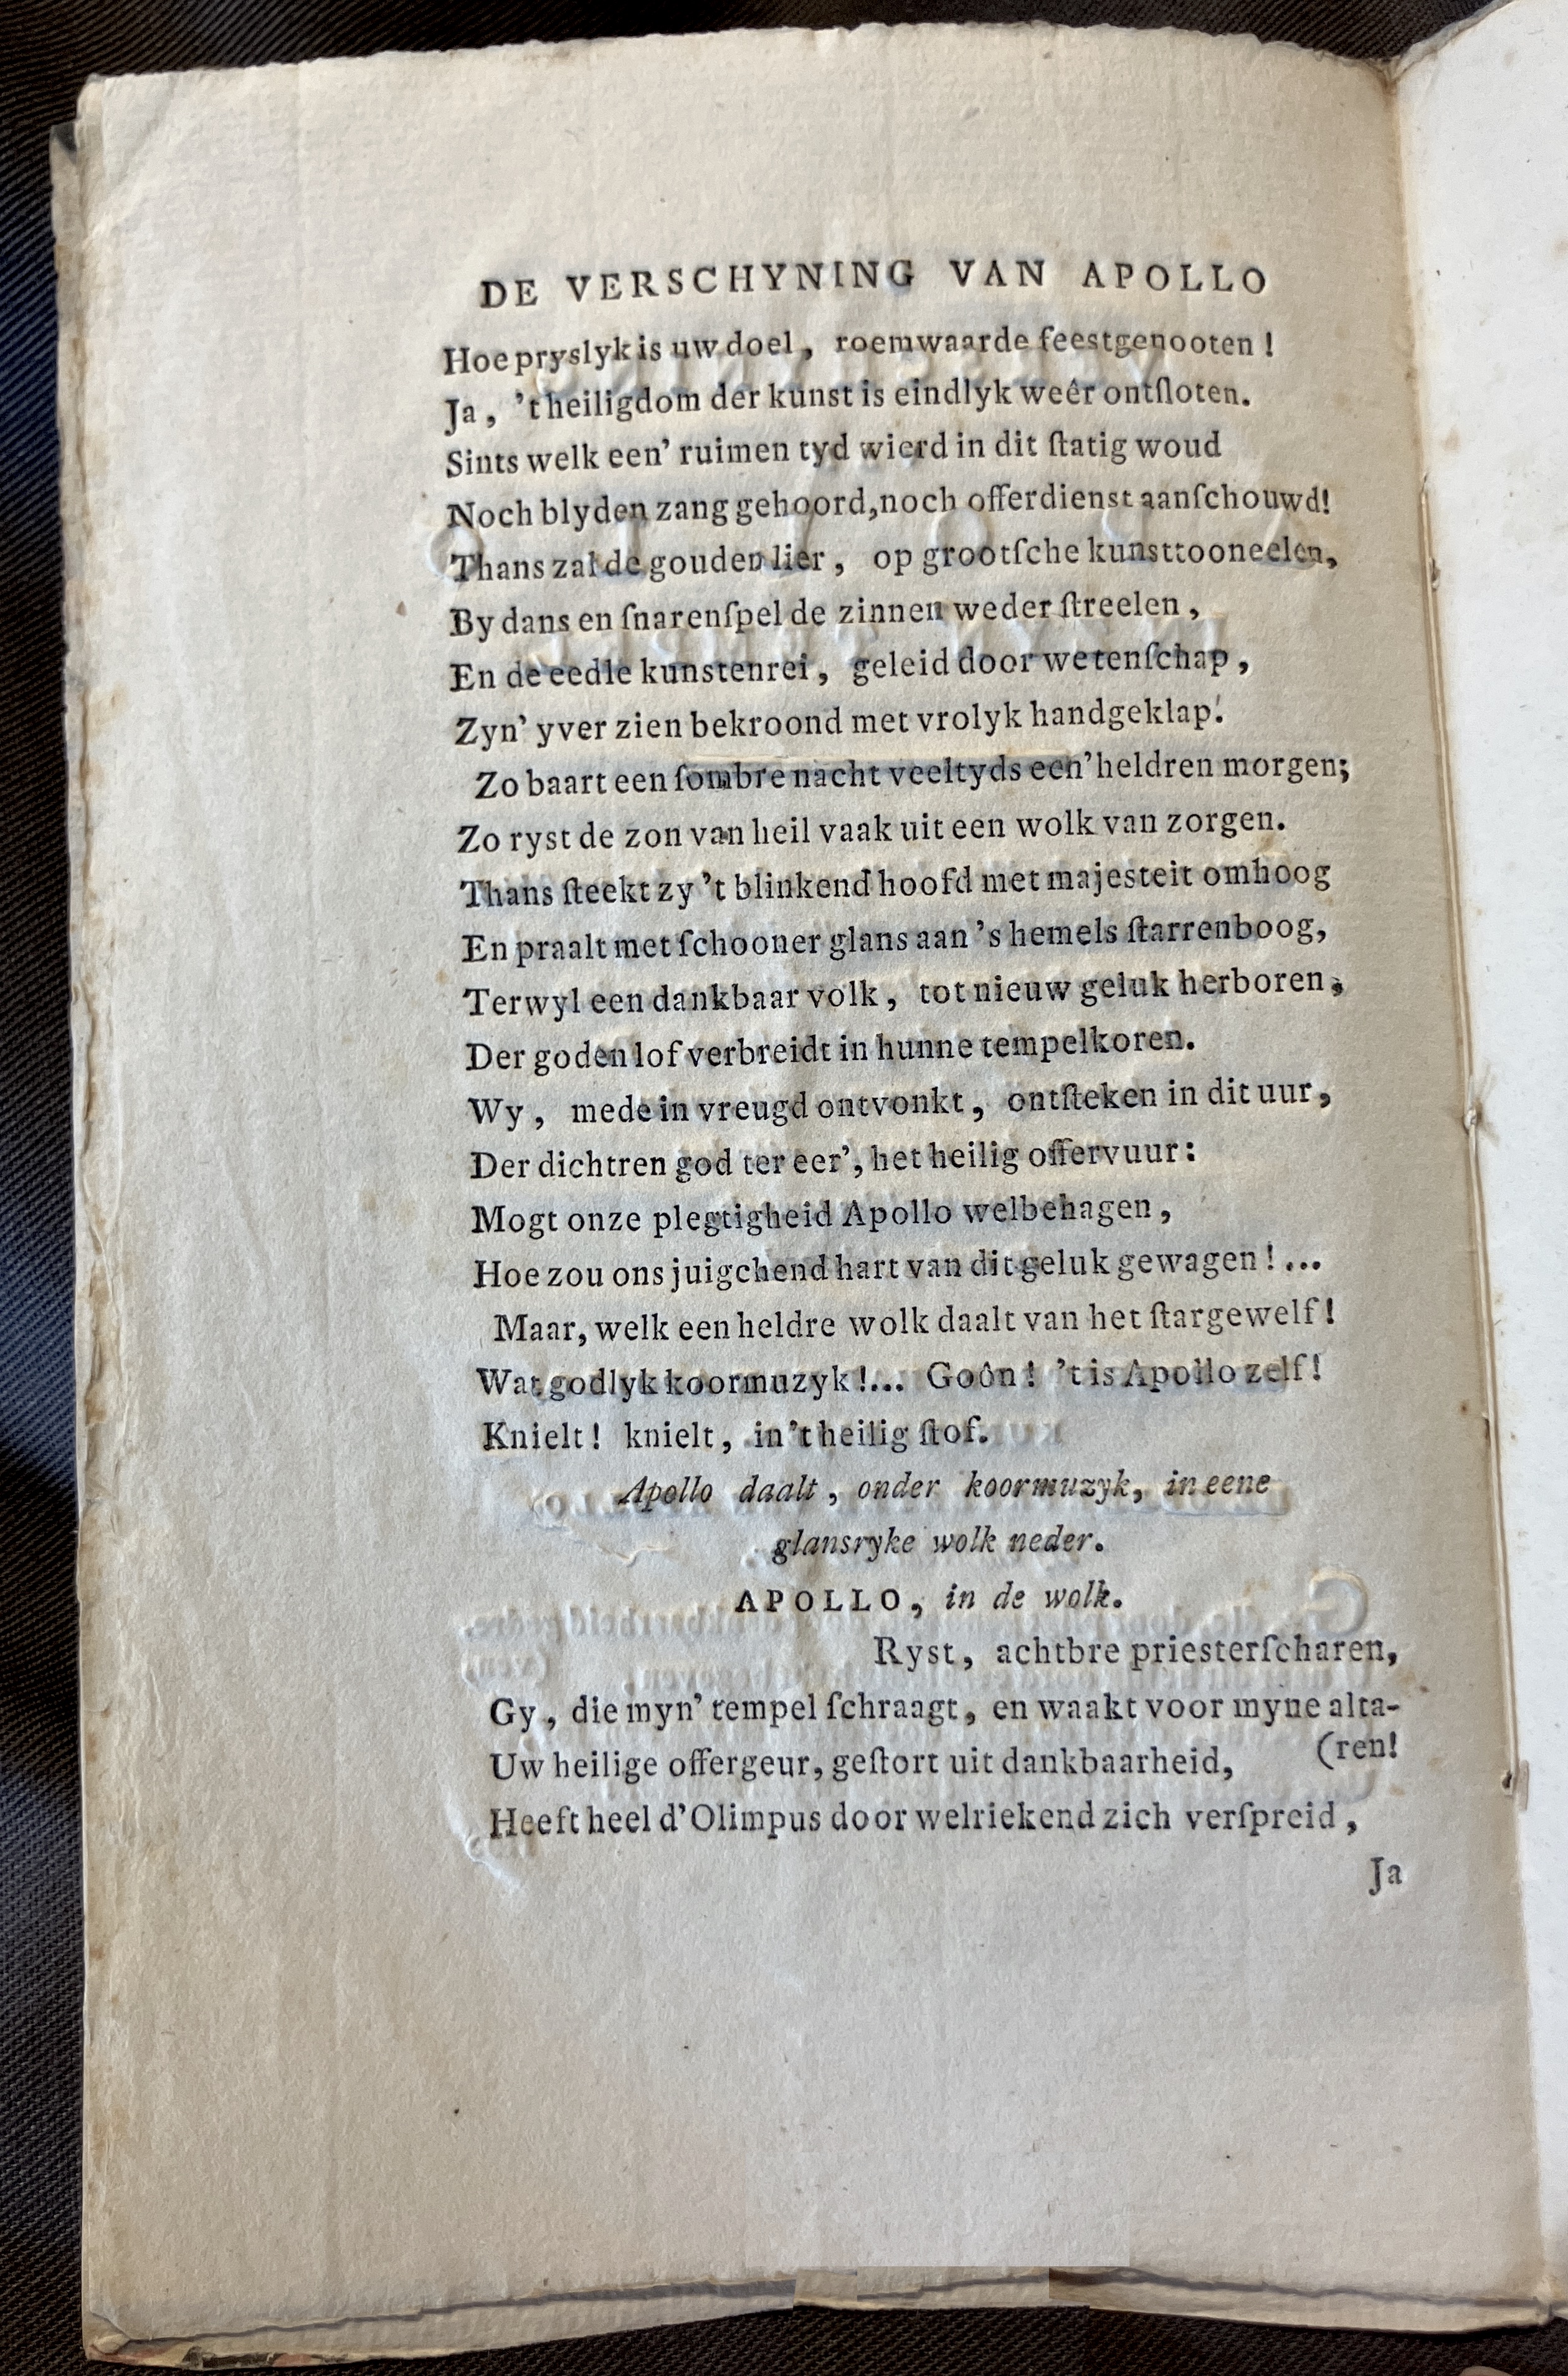 DE VERSCHYNING VAN APOLLO
Hoe pryslyk is uw doel, roemwaarde feestgenooten!
Ja, 't heiligdom der kunst is eindlyk weêr ontſloten.
Sints welk een' ruimen tyd wierd in dit ſtatig woud
Noch blyden zang gehoord, noch offerdienst aanſchouwd!
Thans zal de gouden lier, op grootſche kunsttooneelen,
By dans en ſnarenſpel de zinnen weder ſtreelen,
En de eedle kunstenrei, geleid door wetenſchap,
Zyn' yver zien bekroond met vrolyk handgeklap!
Zo baart een ſombre nacht veeltyds een' heldren morgen;
Zo ryst de zon van heil vaak uit een wolk van zorgen.
Thans ſteekt zy 't blinkend hoofd met majesteit omhoog
En praalt met ſchooner glans aan 's hemels ſtarrenboog,
Terwyl een dankbaar volk, tot nieuw geluk herboren,
Der goden lof verbreidt in hunne tempelkoren.
Wy, mede in vreugd ontvonkt, ontſteken in dit uur,
Der dichtren god ter eer', het heilig offervuur:
Mogt onze plegtigheid Apollo welbehagen,
Hoe zou ons juigchend hart van dit geluk gewagen!...
Maar, welk een heldre wolk daalt van het ſtargewelf!
Wat godlyk koormuzyk!... Goôn! 't is Apollo zelf!
Knielt! knielt, in 't heilig ſtof.
Apollo daalt, onder koormuzyk, in eene
glansryke wolk neder.
APOLLO, in de wolk.
Ryst, achtbre prieſterſcharen,
Gy, die myn' tempel ſchraagt, en waakt voor myne alta-
(ren!
Uw heilige offergeur, geſtort uit dankbaarheid,
Heeft heel d'Olimpus door welriekend zich verſpreid,
Ja